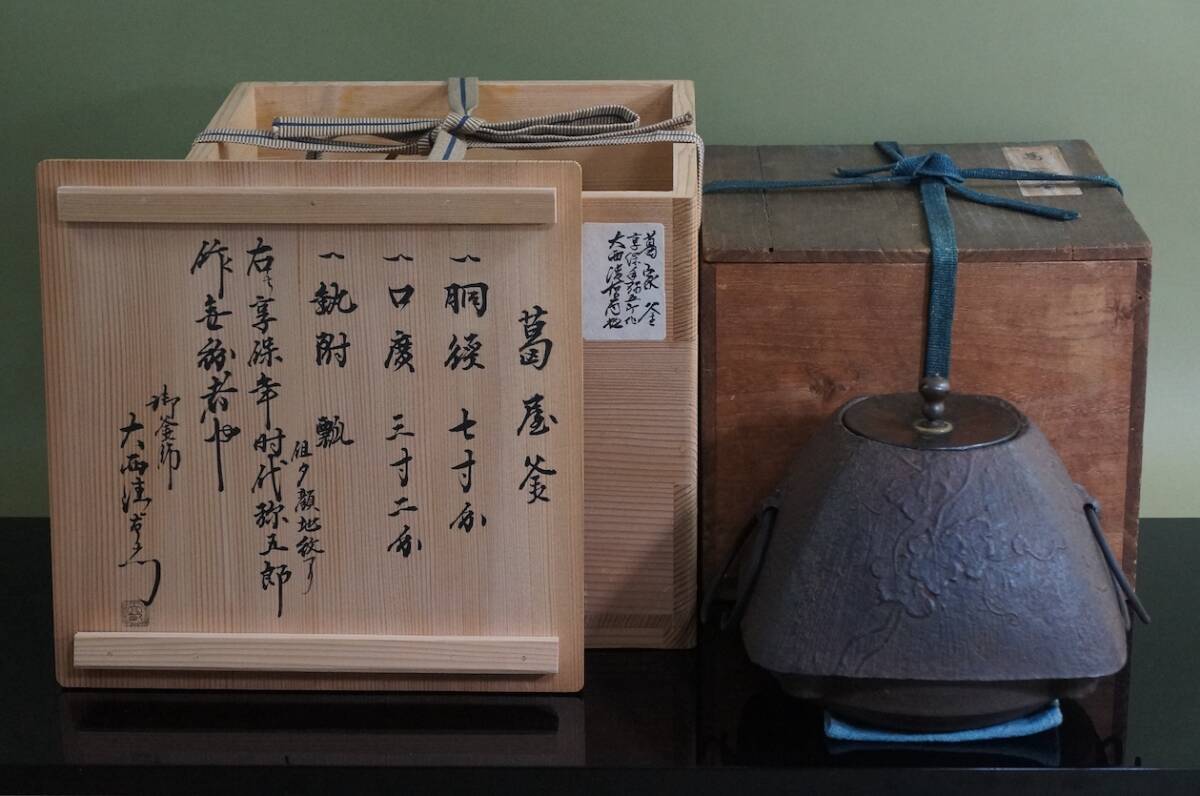 葛屋釜
一胴径 七寸分
一口廣 三寸二分
一釻附 瓢
但夕顔地紋アリ
右ハ享保年時代弥五郎
作無紛者也
御釜師
大西清右衛門
葛家釜
享保年弥五郎作